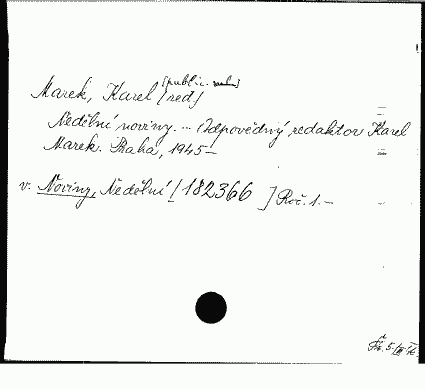 [public.
Marek, Karel [red]
Nedělní noviny. ... Odpovědný redaktor Karel
Marek. Praha, 1945-
v. Noviny, Nedělní [182366 ] Roč. 1. -